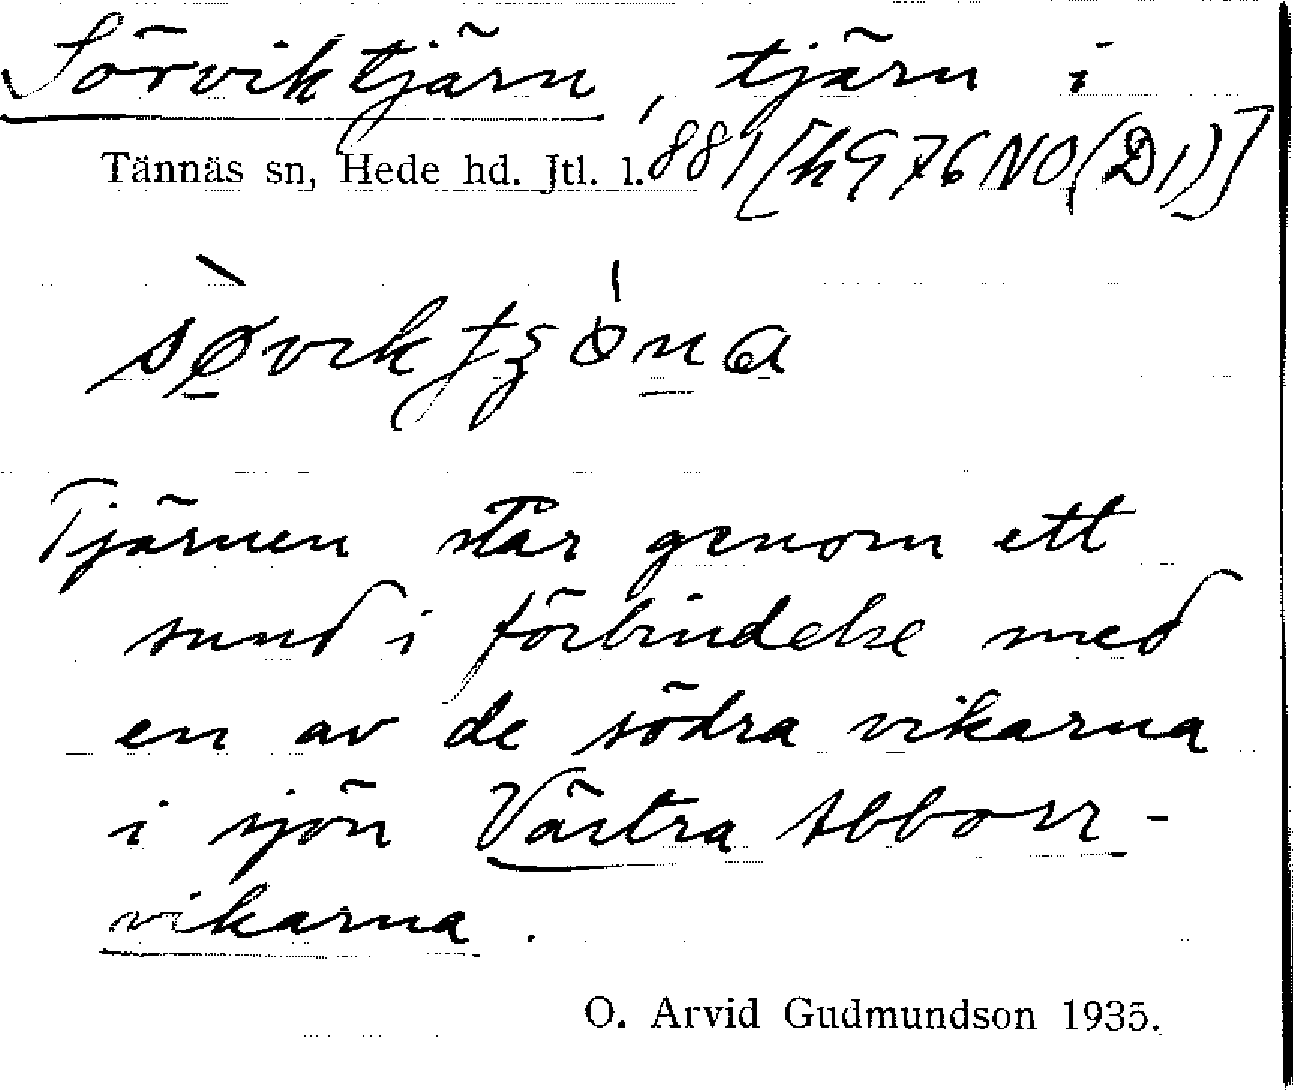 Sörviktjärn, tjärn i
Tännäs sn, Hede hd. Jtl. l. 881 [h976NO(D1)]
Tjärnen står genom ett
sund i förbindelse med
en av de södra vikarna
i sjön Västra Abborr-
vikarna.
O. Arvid Gudmundson 1935.